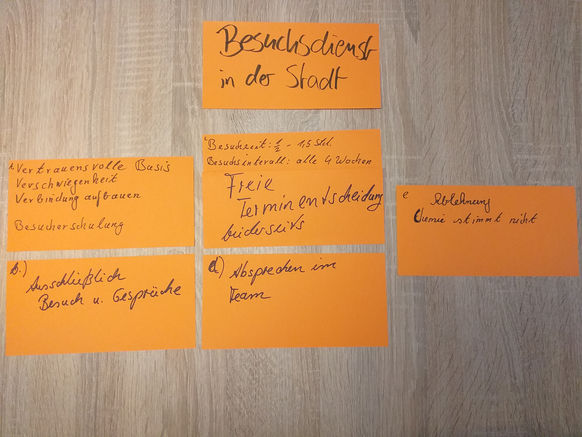 Besuchsdienst
in der Stadt
a. Vertrauensvolle Basis
Verschwiegenheit
Verbindung aufbauen
Besucherschulung
b.) Ausschließlich
Besuch u. Gespräche
c Besuchzeit: 1/2 - 1,5 Std.
Besuchsintervall: alle 4 Wochen
Freie
Terminentscheidung
beiderseits
d) Absprechen im
Team
e Ablehnung
Chemie stimmt nicht